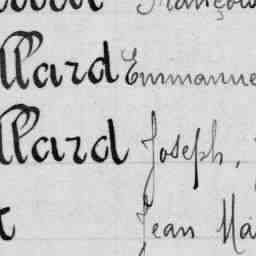 François
llard Emmanue
llard Joseph,
Jean Ma